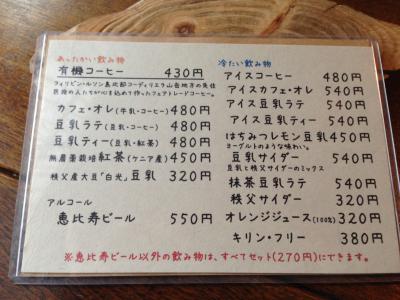 あったかい飲み物
有機コーヒー 430円
フィリピン・ルソン島北部コーディリエラ山岳地方の先住
民族の人たちが心を込めて作ったフェアトレードコーヒー。
カフェ・オレ(牛乳・コーヒー) 480円
豆乳ラテ(豆乳・コーヒー) 480円
豆乳ティー(豆乳・紅茶) 480円
無農薬栽培紅茶(ケニア産) 450円
秩父産大豆「白光」豆乳 320円
アルコール
恵比寿ビール 550円
冷たい飲み物
アイスコーヒー 480円
アイスカフェ・オレ 540円
アイス豆乳ラテ 540円
アイス豆乳ティー 540円
はちみつレモン豆乳 450円
ヨーグルトのような味わい。
豆乳サイダー 540円
豆乳と秩父サイダーのミックス
抹茶豆乳ラテ 540円
秩父サイダー 320円
オレンジジュース(100%) 320円
キリン・フリー 380円
※恵比寿ビール以外の飲み物は、すべてセット(270円)にできます。